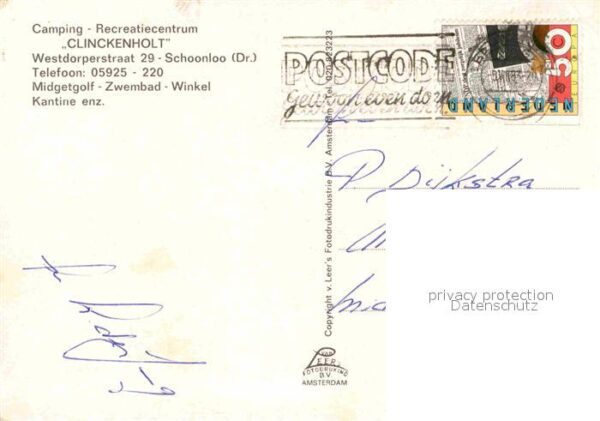 Camping - Recreatiecentrum
„CLINCKENHOLT"
Westdorperstraat 29 - Schoonloo (Dr.)
Telefoon: 05925 - 220
Midgetgolf - Zwembad - Winkel
Kantine enz.
POSTCODE
gewoon even doen
50
NEDERLAND
Copyright v. Leer's Fotodrukindustrie B.V. Amsterdam Tel. 020-823223
P. Dijkstra
privacy protection
Datenschutz
VAN
LEER'S
FOTODRUKIND
B.V.
AMSTERDAM